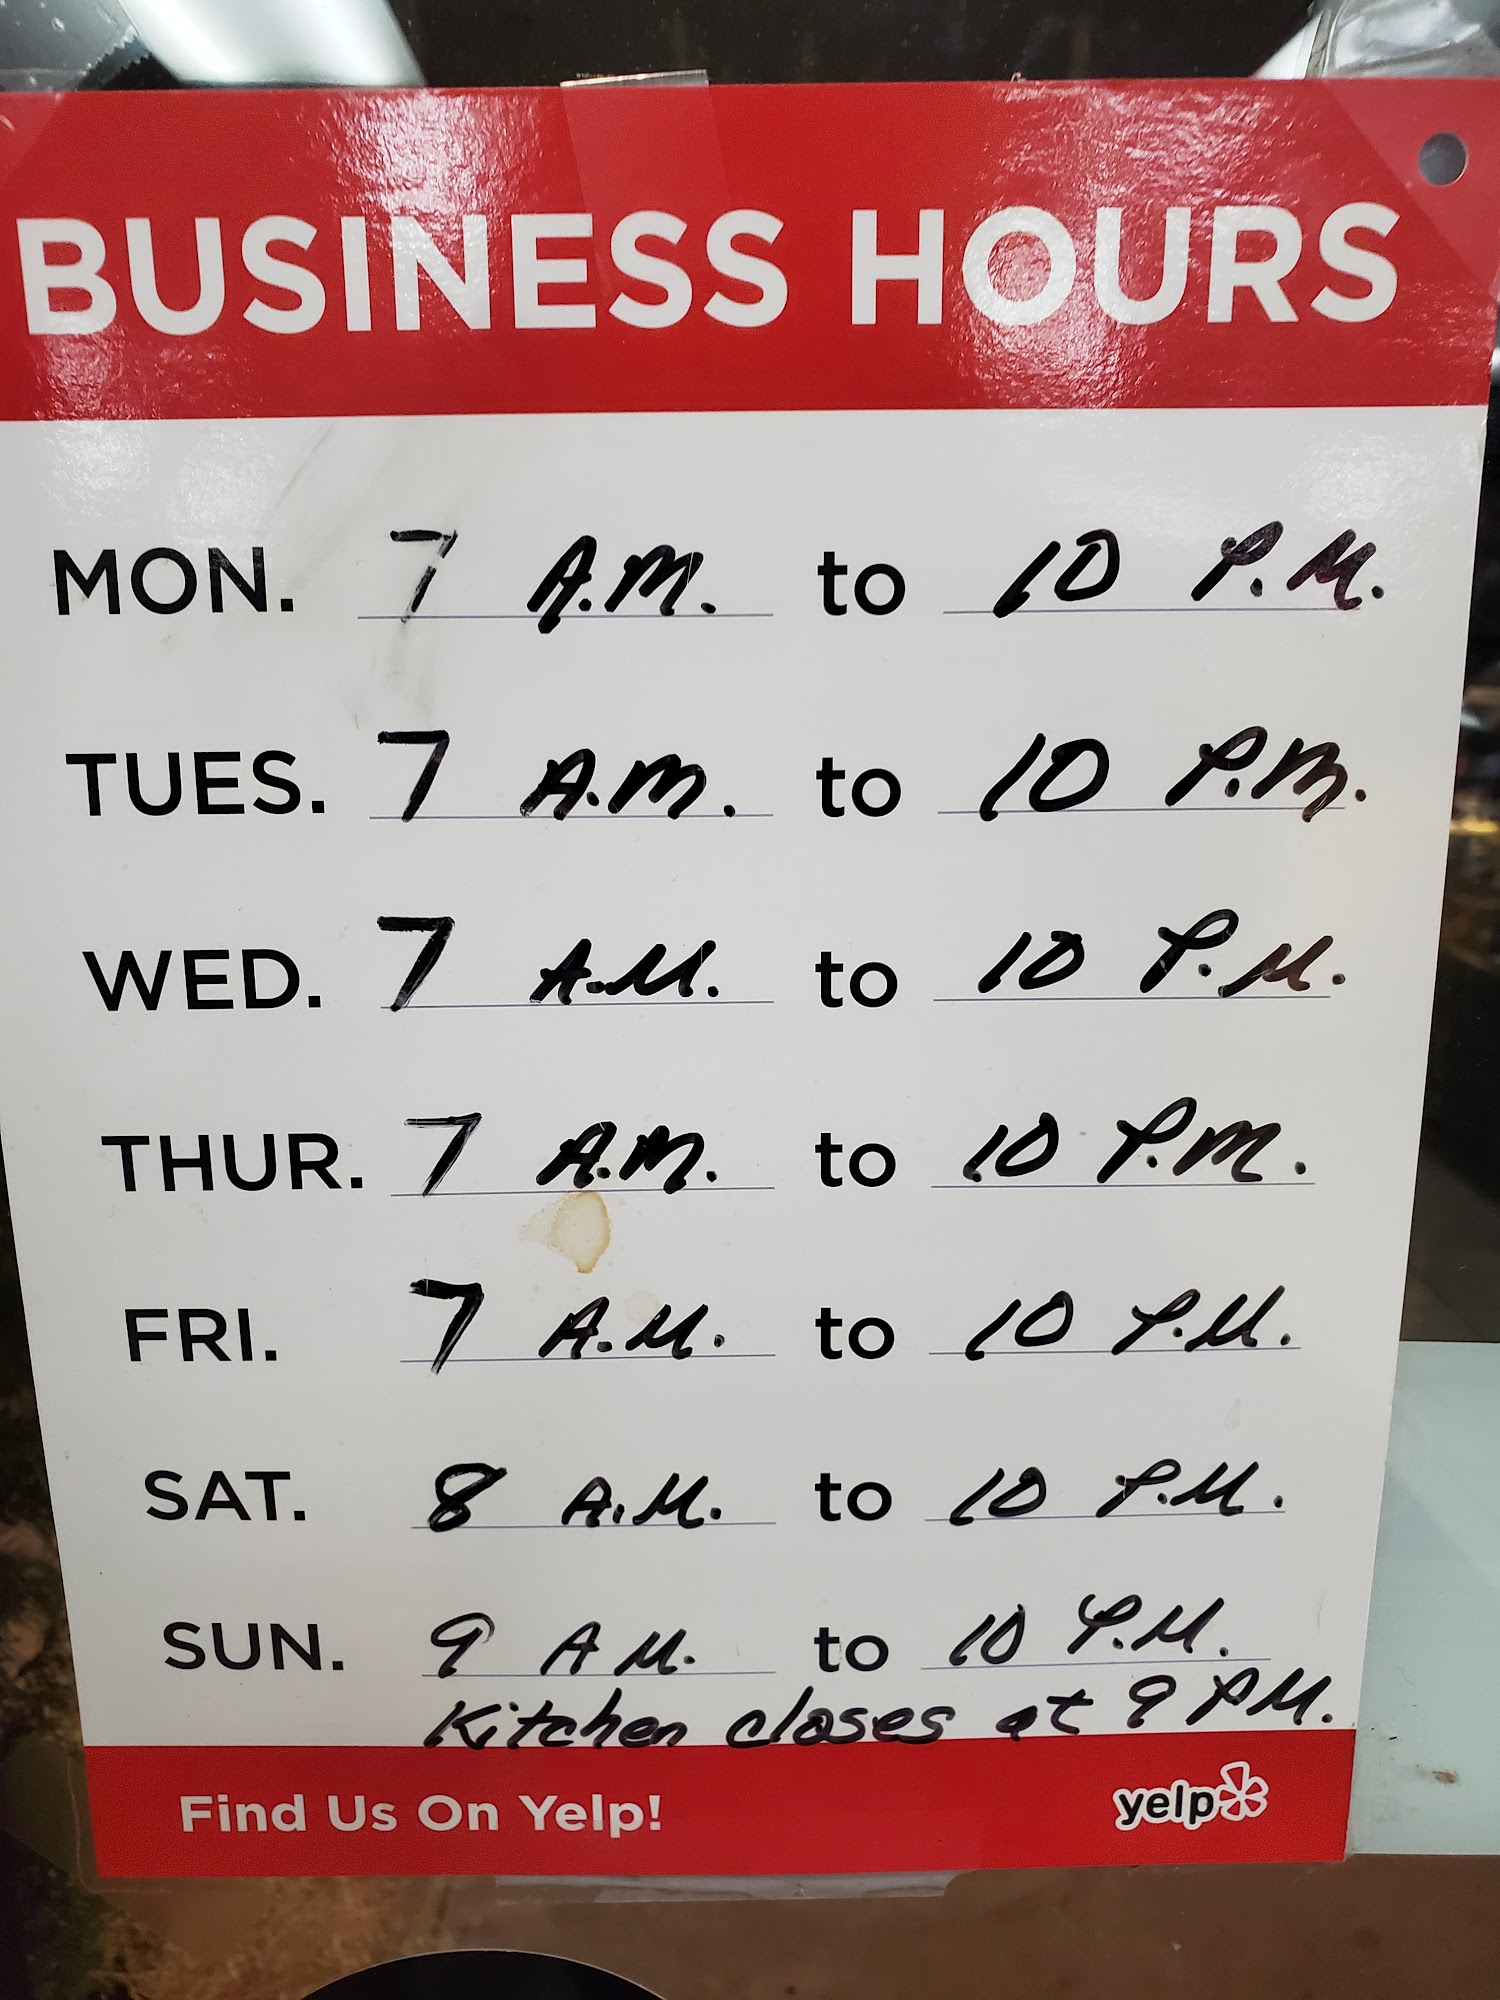 BUSINESS HOURS
MON. 7 A.M. to 10 P.M.
TUES. 7 A.M. to 10 P.M.
WED. 7 A.M. to 10 P.M.
THUR. 7 A.M. to 10 P.M.
FRI. 7 A.M. to 10 P.M.
SAT. 8 A.M. to 10 P.M.
SUN. 9 A M. to 10 P.M.
Kitchen closes at 9 PM.
Find Us On Yelp! yelp